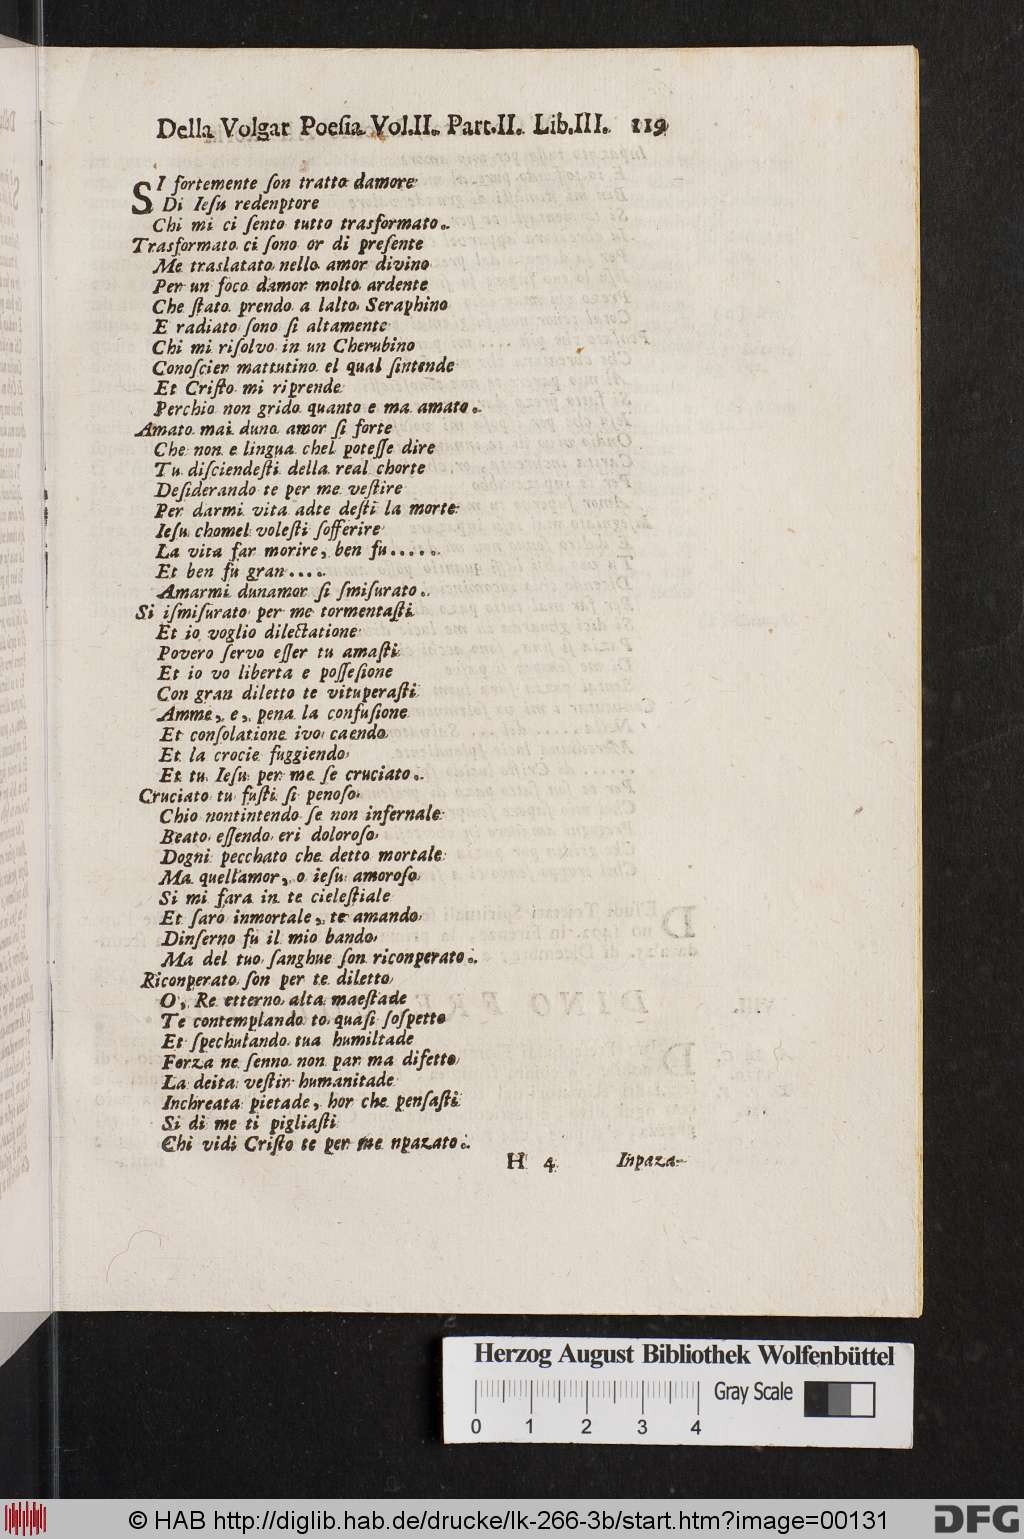 Della Volgar Poeſia Vol.II. Part.II. Lib.III. 119
SI fortemente ſon tratto damore
Di Ieſu redenptore
Chi mi ci ſento tutto trasformato.
Trasformato ci ſono or di preſente
Me traslatato nello amor divino
Per un foco damor molto ardente
Che ſtato prendo a lalto Seraphino
E radiato ſono ſi altamente
Chi mi riſolvo in un Cherubino
Conoſcier mattutino el qual ſintende
Et Criſto mi riprende
Perchio non grido quanto e ma amato.
Amato mai duno amor ſi forte
Che non e lingua chel poteſſe dire
Tu diſciendeſti della real chorte
Deſiderando te per me veſtire
Per darmi vita adte deſti la morte
Ieſu chomel voleſti ſofferire
La vita far morire, ben fu.....
Et ben fu gran....
Amarmi dunamor ſi ſmiſurato.
Si iſmiſurato per me tormentaſti
Et io voglio dilectatione
Povero ſervo eſſer tu amaſti
Et io vo liberta e poſſeſione
Con gran diletto te vituperaſti
Amme, e, pena la confuſione
Et conſolatione ivo caendo
Et la crocie fuggiendo
Et tu Ieſu per me ſe cruciato.
Cruciato tu fuſti ſi penoſo
Chio nontintendo ſe non infernale
Beato eſſendo eri doloroſo
Dogni pecchato che detto mortale
Ma quellamor, o ieſu amoroſo
Si mi fara in te cieleſtiale
Et ſaro inmortale, te amando
Dinferno fu il mio bando
Ma del tuo ſanghue ſon riconperato.
Riconperato ſon per te diletto
O, Re etterno alta maeſtade
Te contemplando to quaſi ſoſpetto
Et ſpechulando tua humiltade
Forza ne ſenno non par ma difetto
La deita veſtir humanitade
Inchreata pietade, hor che penſaſti
Si di me ti pigliaſti
Chi vidi Criſto te per me npazato.
H 4 Inpaza-
Herzog August Bibliothek Wolfenbüttel
Gray Scale
0 1 2 3 4
© HAB http://diglib.hab.de/drucke/lk-266-3b/start.htm?image=00131
DFG